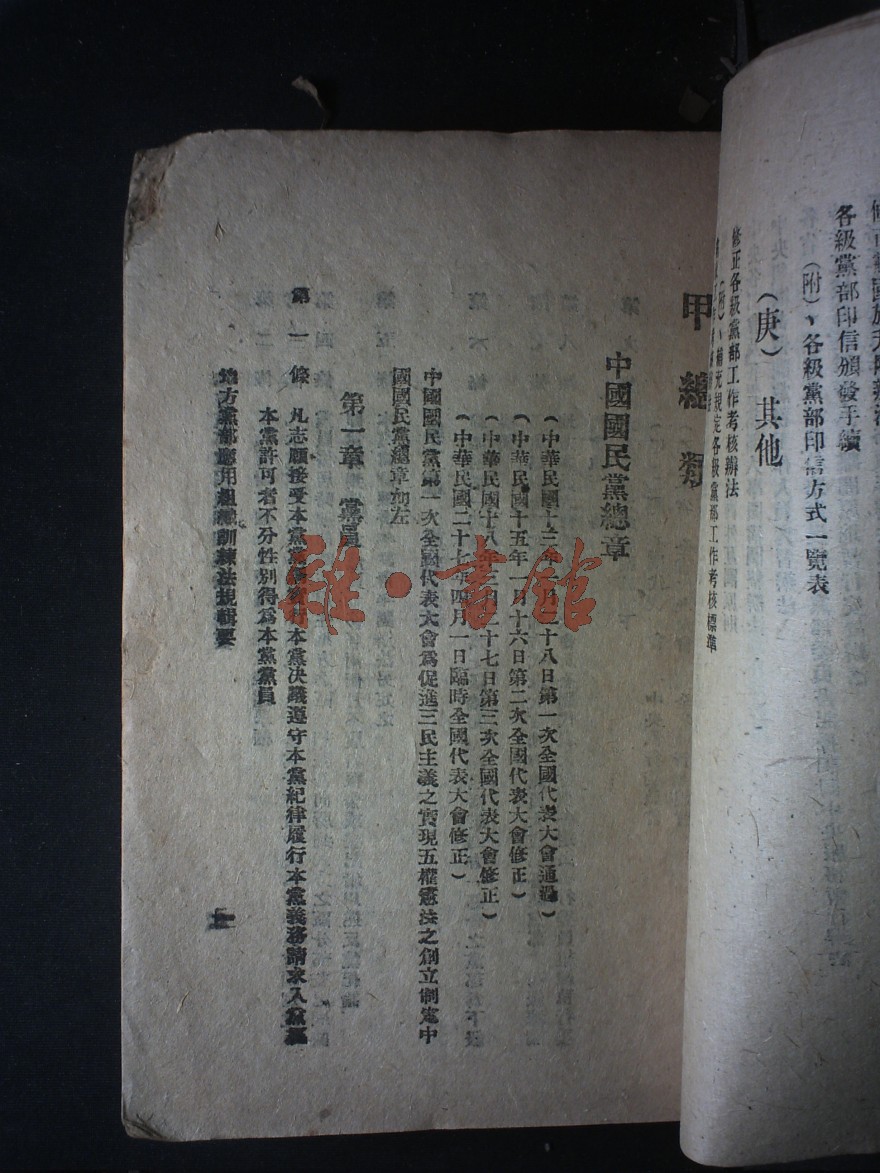 各級黨部印信頒發手續
(附)、各級黨部印信方式一覽表
(庚) 其他
修正各級黨部工作考核辦法
(附)、補充規定各級黨部工作考核標準
甲 總類
中國國民黨總章
(中華民國十三年一月二十八日第一次全國代表大會通過)
(中華民國十五年一月十六日第二次全國代表大會修正)
(中華民國十八年三月二十七日第三次全國代表大會修正)
(中華民國二十七年四月一日臨時全國代表大會修正)
中國國民黨第一次全國代表大會爲促進三民主義之實現五權憲法之創立制定中
國國民黨總章如左
第一章 黨員
第一條 凡志願接受本黨黨綱實行本黨決議遵守本黨紀律履行本黨義務請求入黨經
本黨許可者不分性別得爲本黨黨員
地方黨部應用組織訓練法規輯要
一
雜·書館